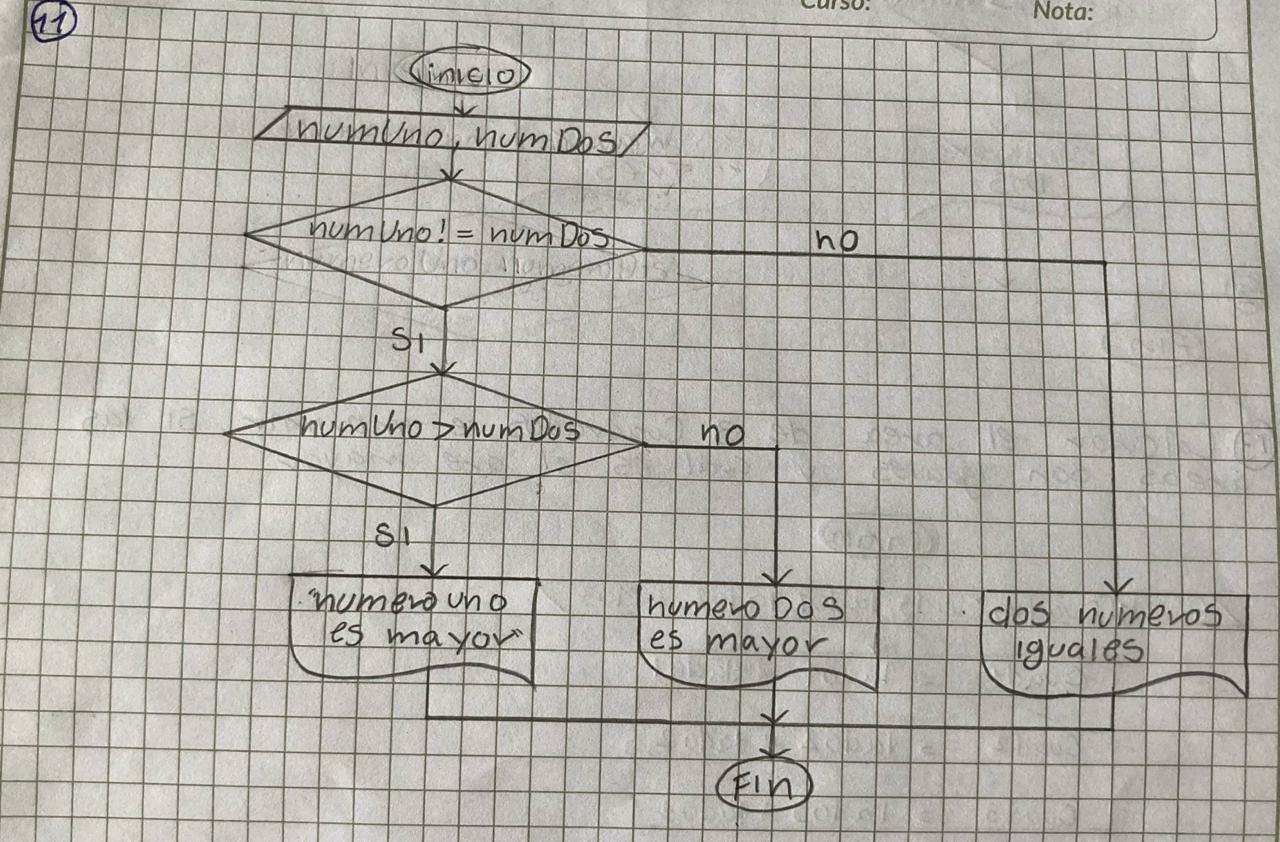 Curso:
Nota:
11
inicio
numUno, numDos
numUno != numDos
no
SI
numUno > numDos
no
SI
numero uno
es mayor
numero Dos
es mayor
dos numeros
iguales
Fin